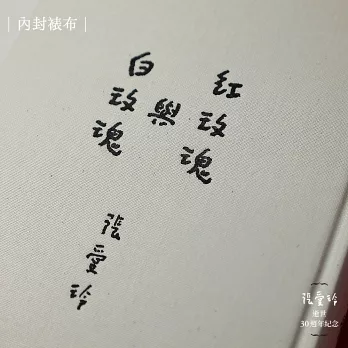 | 內封裱布 |
紅玫瑰
與
白玫瑰
張愛玲
張愛玲
逝世
30週年紀念